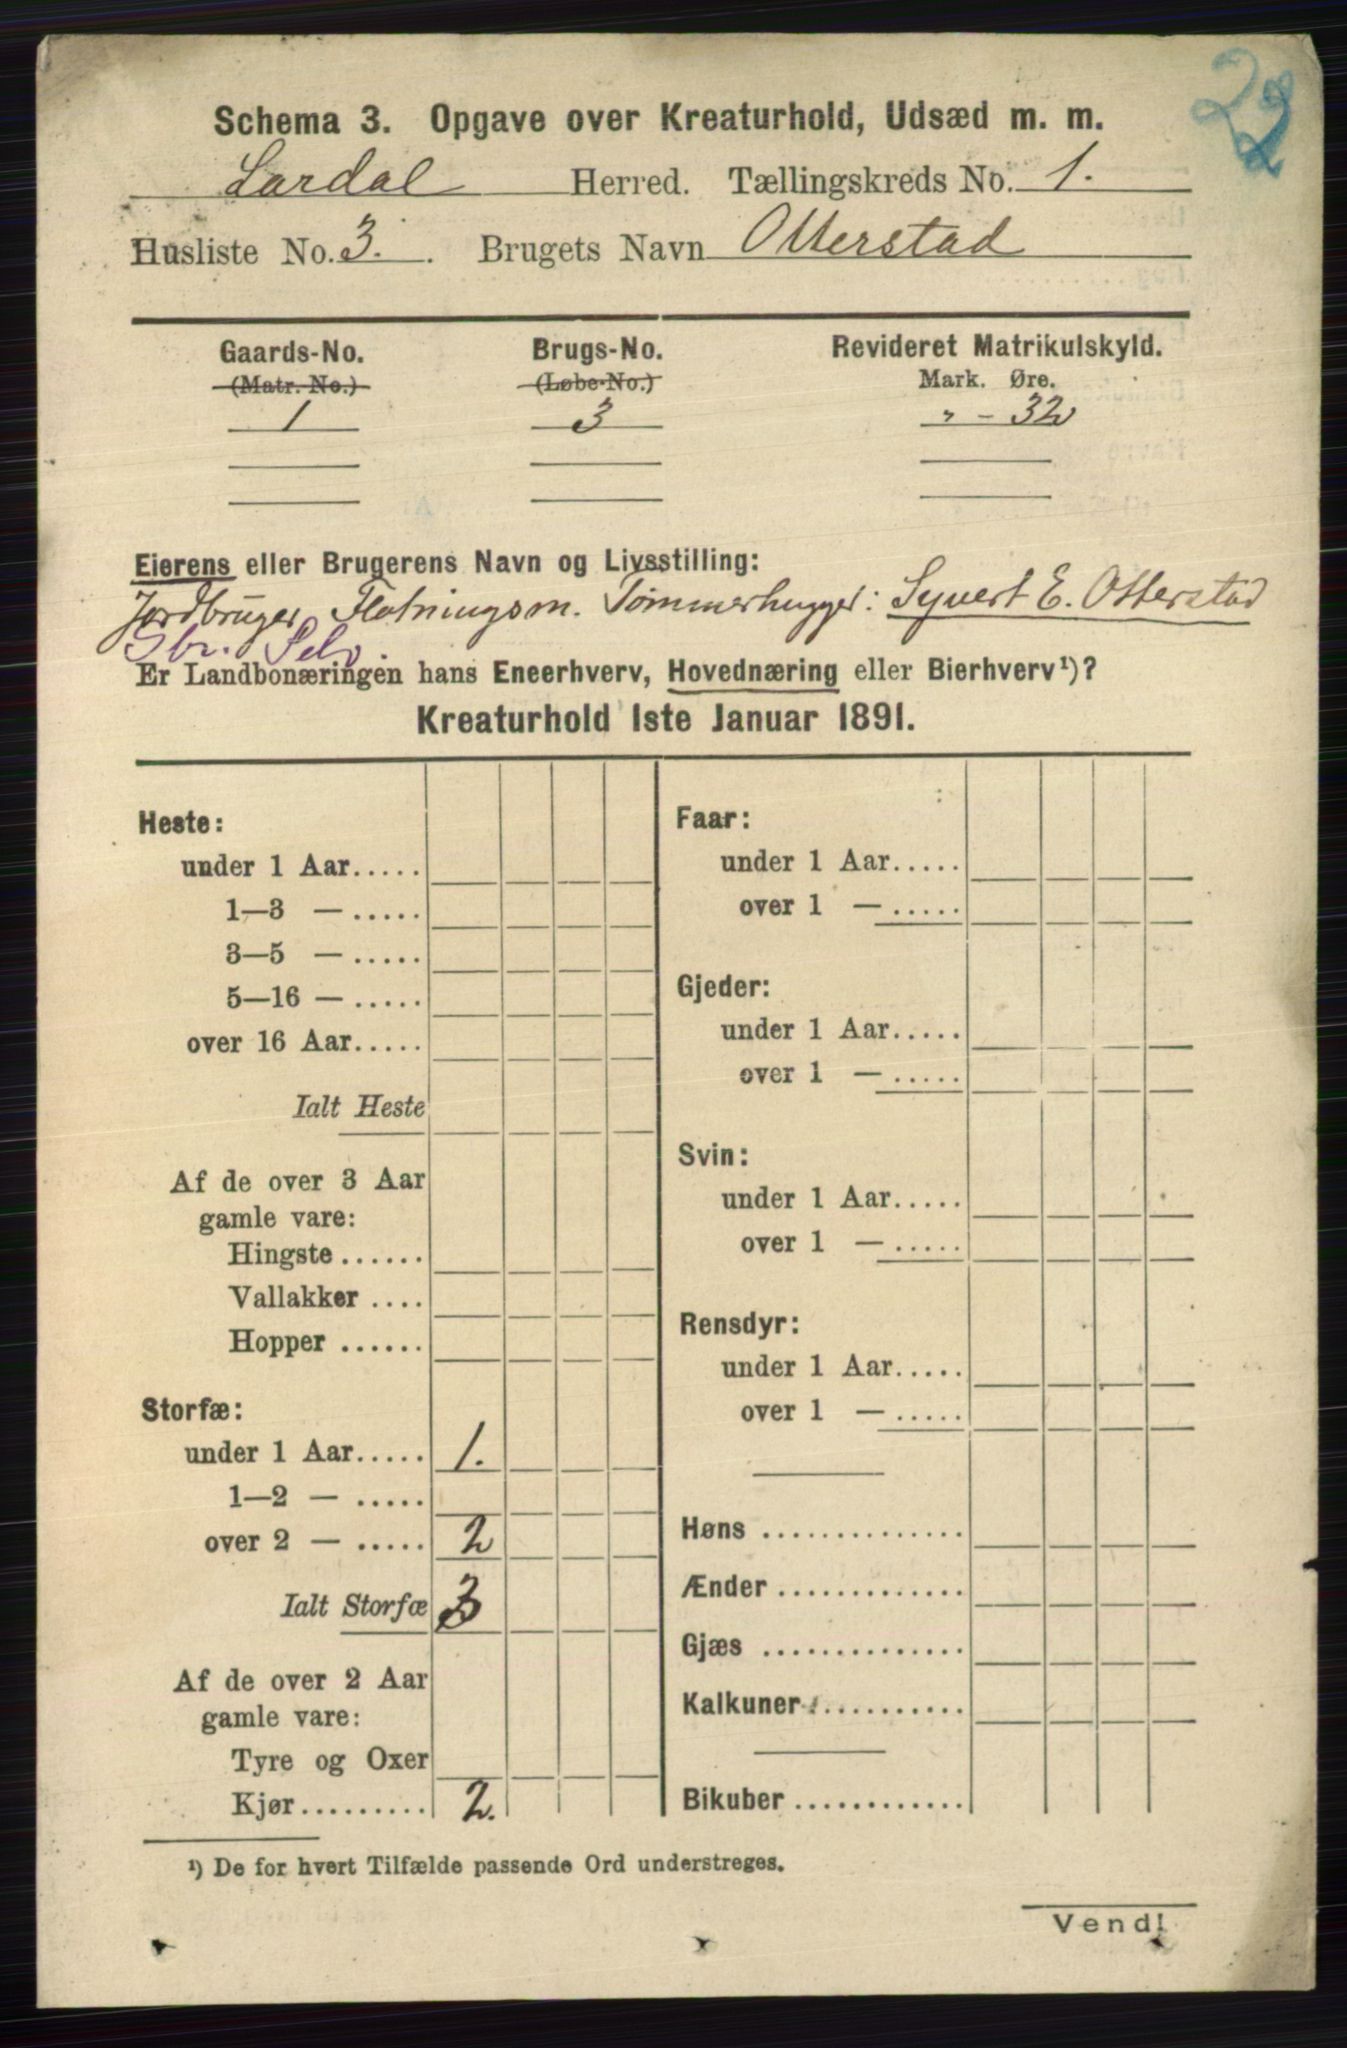 22
Schema 3. Opgave over Kreaturhold, Udsæd m. m.
Lardal Herred. Tællingskreds No. 1.
Husliste No. 3. Brugets Navn Otterstad
Gaards-No. Brugs-No. Revideret Matrikulskyld.
(Matr. No.) (Løbe-No.) Mark. Øre.
1 3 " - 32
Eierens eller Brugerens Navn og Livsstilling:
Jordbruger, Flotningsm. Tømmerhugger: Syvert E. Otterstad
Gbr. Selv.
Er Landbonæringen hans Eneerhverv, Hovednæring eller Bierhverv¹)?
Kreaturhold 1ste Januar 1891.
Heste:
under 1 Aar.....
1—3 — .....
3—5 — .....
5—16 — .....
over 16 Aar.....
Ialt Heste
Af de over 3 Aar
gamle vare:
Hingste ......
Vallakker ....
Hopper ......
Storfæ:
under 1 Aar..... 1.
1—2 — .....
over 2 — ..... 2
Ialt Storfæ 3
Af de over 2 Aar
gamle vare:
Tyre og Oxer
Kjør......... 2.
Faar:
under 1 Aar.....
over 1 — .....
Gjeder:
under 1 Aar.....
over 1 — .....
Svin:
under 1 Aar.....
over 1 — .....
Rensdyr:
under 1 Aar.....
over 1 — .....
Høns ..............
Ænder .............
Gjæs ..............
Kalkuner ...........
Bikuber ............
¹) De for hvert Tilfælde passende Ord understreges.
Vend!